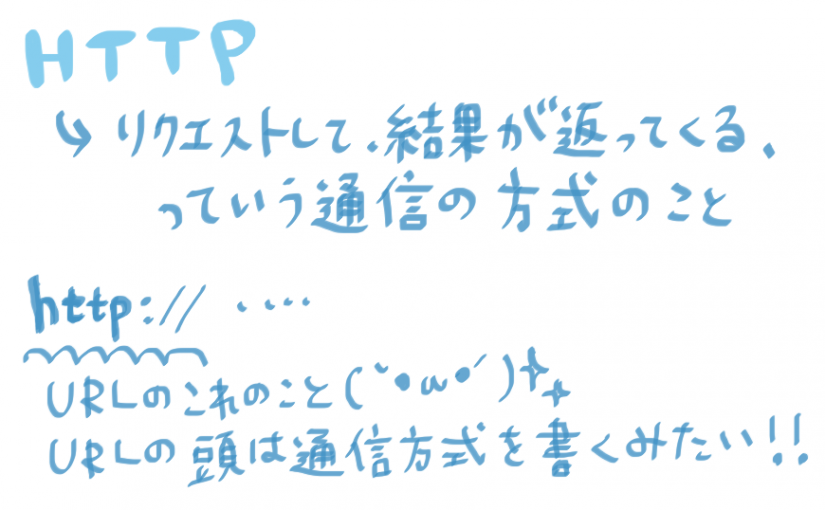 HTTP
↳ リクエストして、結果が返ってくる、
っていう通信の方式のこと
http:// ....
URLのこれのこと(`•ω•´)✧✧
URLの頭は通信方式を書くみたい!!